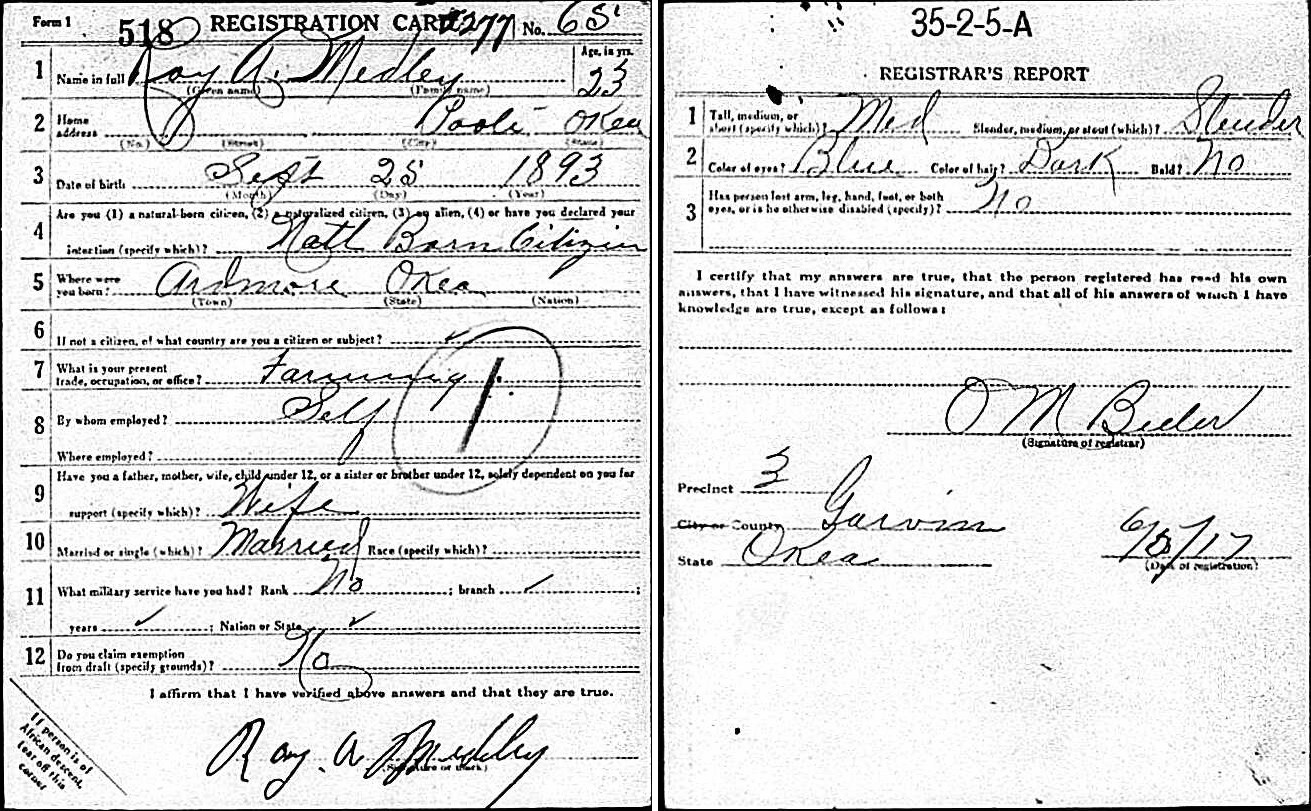 Form 1 518 REGISTRATION CARD 277 No. 65
1 Name in full Roy A. Medley Age, in yrs. 23
(Given name) (Family name)
2 Home address Poole Okla
(No.) (Street) (City) (State)
3 Date of birth Sept 25 1893
(Month) (Day) (Year)
4 Are you (1) a natural-born citizen, (2) a naturalized citizen, (3) an alien, (4) or have you declared your
intention (specify which)? Natl Born Citizin
5 Where were you born? Ardmore Okla
(Town) (State) (Nation)
6 If not a citizen, of what country are you a citizen or subject?
7 What is your present trade, occupation, or office? Farming
8 By whom employed? Self
Where employed?
1
9 Have you a father, mother, wife, child under 12, or a sister or brother under 12, solely dependent on you for
support (specify which)? Wife
10 Married or single (which)? Married Race (specify which)?
11 What military service have you had? Rank No ; branch ✓ ;
years ✓ ; Nation or State ✓
12 Do you claim exemption from draft (specify grounds)? No
I affirm that I have verified above answers and that they are true.
Roy. A Medley
(Signature or mark)
If person is of
African descent,
tear off this
corner
35-2-5-A
REGISTRAR'S REPORT
1 Tall, medium, or short (specify which)? Med Slender, medium, or stout (which)? Slender
2 Color of eyes? Blue Color of hair? Dark Bald? No
3 Has person lost arm, leg, hand, foot, or both eyes, or is he otherwise disabled (specify)? No
I certify that my answers are true, that the person registered has read his own
answers, that I have witnessed his signature, and that all of his answers of which I have
knowledge are true, except as follows:
O M Beeler
(Signature of registrar)
Precinct 3
City or County Garvin
State Okla 6/5/17
(Date of registration)